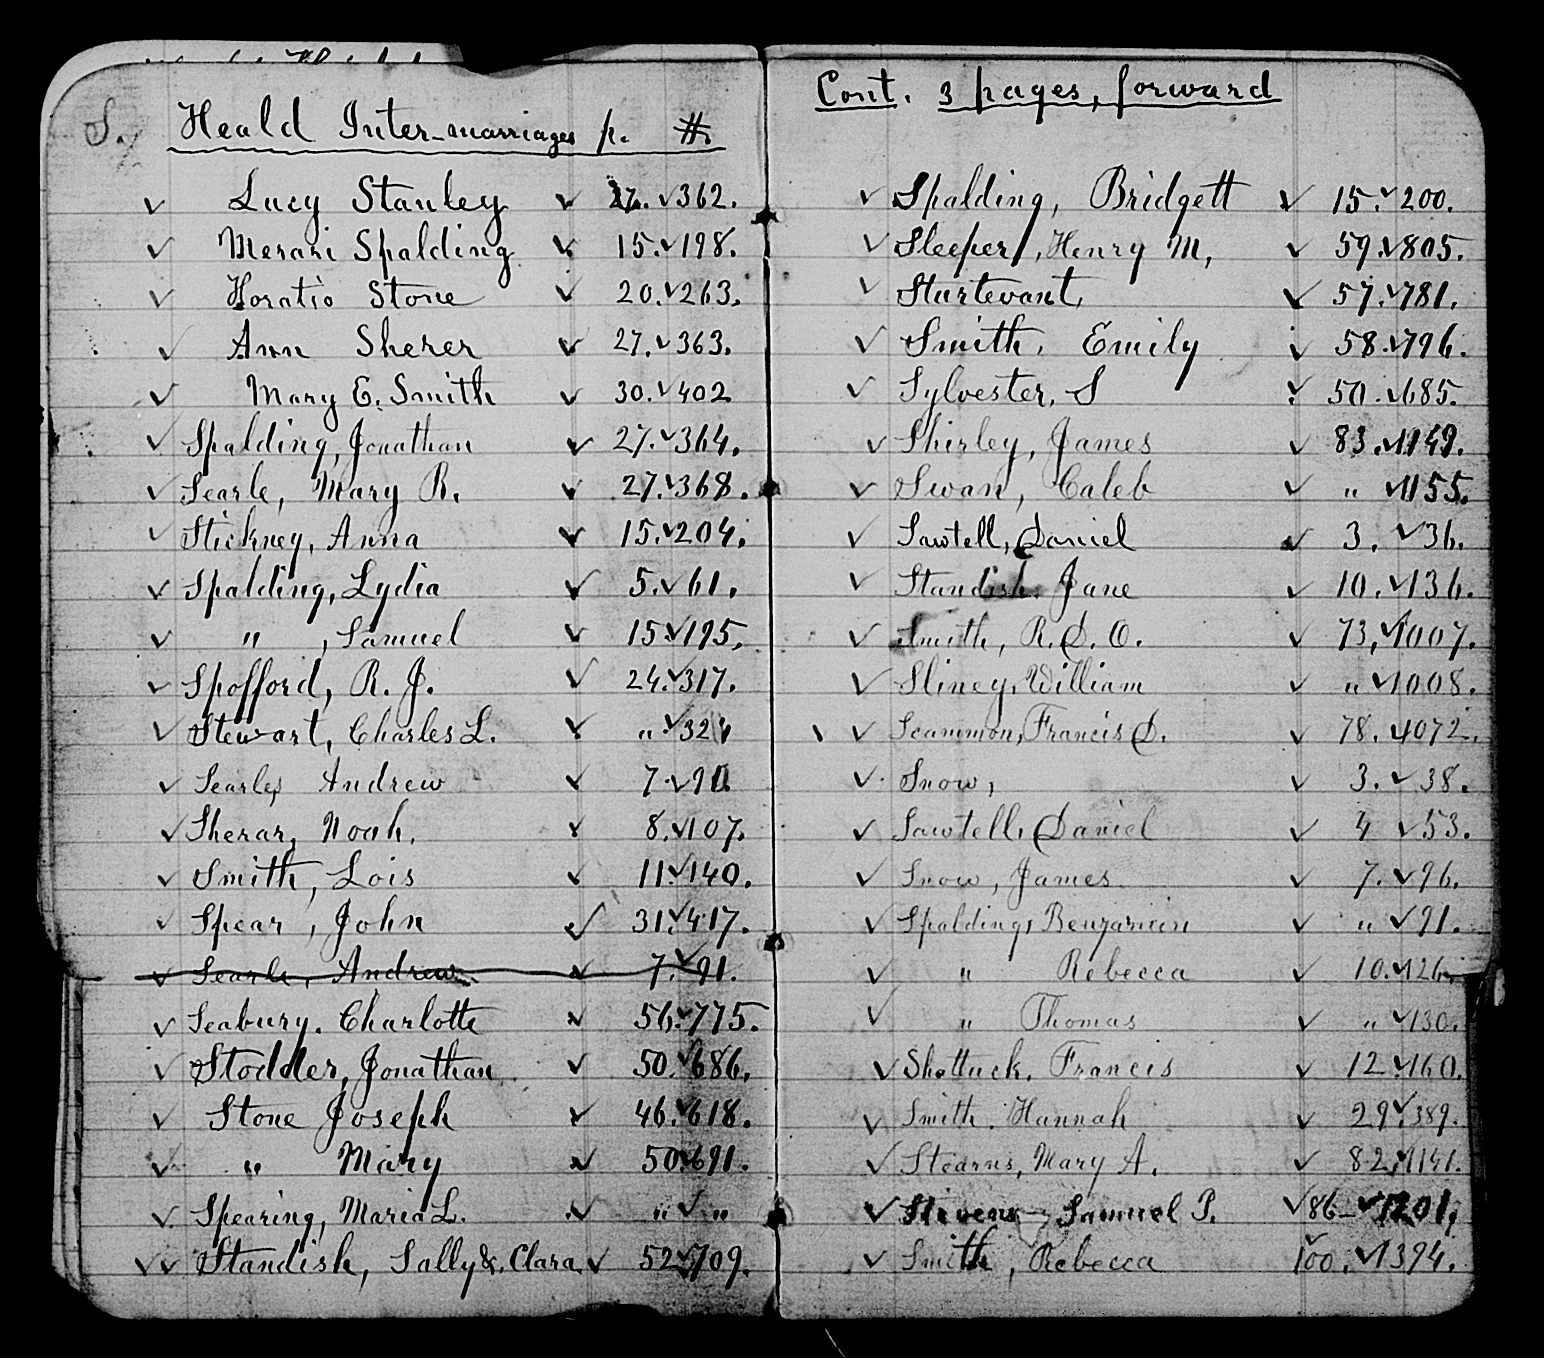 S. Heald Inter-marriages p. #.
✓ Lucy Stanley ✓ 27. ✓362.
✓ Merari Spalding ✓ 15. ✓198.
✓ Horatio Stone ✓ 20. ✓263.
✓ Ann Sherer ✓ 27. ✓363.
✓ Mary E. Smith ✓ 30. ✓402
✓ Spalding, Jonathan ✓ 27. ✓364.
✓ Searle, Mary R. ✓ 27. ✓368.
✓ Stickney, Anna ✓ 15. ✓204.
✓ Spalding, Lydia ✓ 5. ✓61.
✓ " , Samuel ✓ 15. ✓195.
✓ Spofford, R. J. ✓ 24. ✓317.
✓ Stewart, Charles L. ✓ " ✓324
✓ Searles Andrew ✓ 7. ✓90.
✓ Sherar, Noah. ✓ 8. ✓107.
✓ Smith, Lois ✓ 11. ✓140.
✓ Spear, John ✓ 31. ✓417.
✓ Searle, Andrew ✓ 7. ✓91.
✓ Seabury. Charlotte ✓ 56. ✓775.
✓ Stodder, Jonathan ✓ 50. ✓686.
✓ Stone Joseph ✓ 46. ✓618.
✓ " Mary ✓ 50. ✓691.
✓ Spearing, Maria L. ✓ " ✓ "
✓✓ Standish, Sally &. Clara. ✓ 52. ✓709.
Cont. 3 pages, forward
✓ Spalding, Bridgett ✓ 15. ✓200.
✓ Sleeper, Henry M, ✓ 59. ✓805.
✓ Sturtevant, ✓ 57. ✓781.
✓ Smith. Emily ✓ 58. ✓796.
✓ Sylvester, S ✓ 50. ✓685.
✓ Shirley, James ✓ 83. ✓1149.
✓ Swan, Caleb ✓ " ✓1155.
✓ Sawtell, Daniel ✓ 3. ✓36.
✓ Standish. Jane ✓ 10. ✓136.
✓ Smith, R. D. O. ✓ 73, ✓1007.
✓ Sliney, William ✓ " ✓1008.
✓ ✓ Scammon, Francis D. ✓ 78. ✓1072.
✓ Snow, ✓ 3. ✓38.
✓ Sawtell, Daniel ✓ 4 ✓53.
✓ Snow, James ✓ 7. ✓96.
✓ Spalding, Benjamin ✓ " ✓91.
✓ " Rebecca ✓ 10. ✓126.
✓ " Thomas ✓ " ✓130.
✓ Shattuck. Francis ✓ 12. ✓160.
✓ Smith. Hannah ✓ 29 ✓389.
✓ Stearns, Mary A. ✓ 82, ✓1141.
✓ Stevens, Samuel P. ✓86 ✓1201,
✓ Smith, Rebecca ✓100. ✓1394.